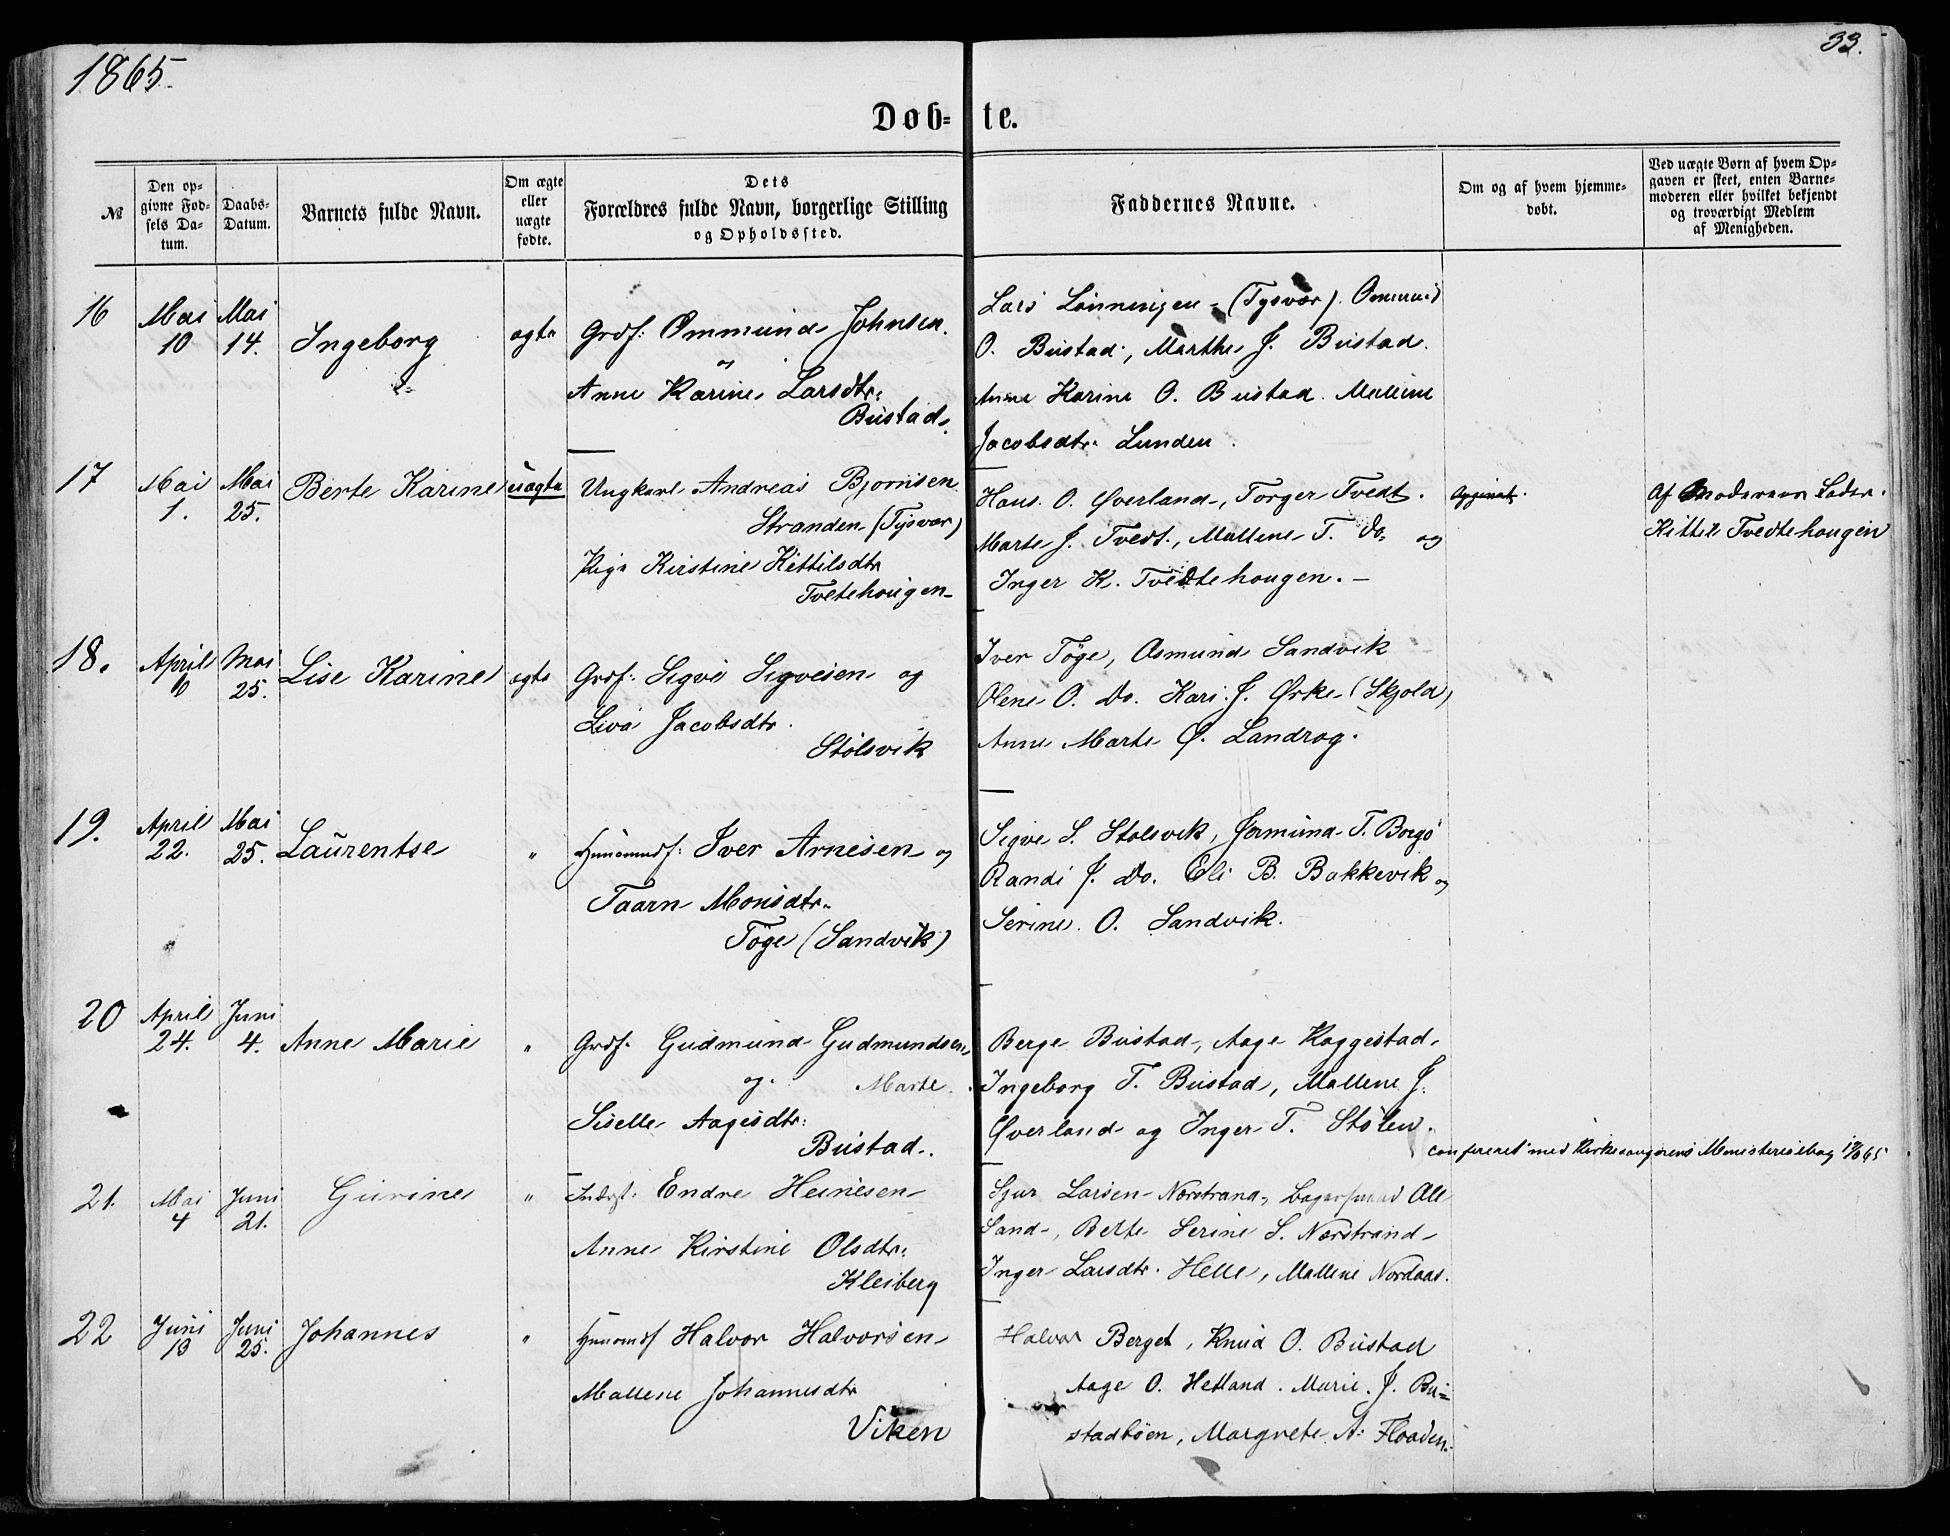 1865.
33.
Døb= te.
№
Den op=
givne Fød=
sels Da=
tum.
Daabs=
Datum.
Barnets fulde Navn.
Om ægte
eller
uægte
fødte.
Dets
Forældres fulde Navn, borgerlige Stilling
og Opholdssted.
Faddernes Navne.
Om og af hvem hjemme=
døbt.
Ved uægte Børn af hvem Op=
gaven er skeet, enten Barne=
moderen eller hvilket bekjendt
og troværdigt Medlem
af Menigheden.
16
Mai
10
Mai
14.
Ingeborg
ægte
Grdf: Ommund Johnsen.
og
Anne Karine Larsdtr.
Bustad.
Lars Lönningen (Tysvær). Ommund
O. Bustad, Marthe J. Bustad.
Anna Karine O. Bustad. Mallene
Jacobsdtr. Lunden.
17
Mai
1.
Mai
25.
Berte Karine
uægte
Ungkarl Andreas Bjørnsen
Stranden (Tysvær)
Pige Kirstine Kittilsdtr
Tvetehougen
Hans. O. Øverland, Torger Tvedt.
Marte J. Tvedt, Mallene T. Do. og
Inger K. Tvedtehougen. –
Af Moderens Fader.
Kittil Tvedtehougen
18.
April
6
Mai
25.
Lise Karine
ægte
Grdf: Sigve Sigvesen og
Liva Jacobsdtr.
Stølsvik
Iver Töge, Osmund Sandvik
Olene O. Do. Kari J. Ørke (Skjold)
Anne Marte Ø. Landrog.
19.
April
22.
Mai
25.
Laurentse
"
Huusmdf: Iver Arnesen og
Taarn Monsdtr.
Töge (Sandvik)
Sigve S. Stolsvik, Jermund T. Borgö
Randi J. Do. Eli B. Bakkevik og
Serine. O. Sandvik.
20
April
24.
Juni
4.
Anne Marie
"
Grdf. Gudmund Gudmundsen
og Marte
Siselle Aagesdtr.
Bustad.
Berge Bustad, Aage Kaggestad.
Ingeborg T. Bustad, Mallene J.
Øverland og Inger T. Stölen.
confereret med Kirkesangerens Ministerialbog
21.
Mai
4
Juni
21.
Gurine
"
Indrst: Endre Heinesen
Anne Kirstine Olsdtr.
Kleiberg
Sjur Larsen Nerstrand, Bager Ole
Sand, Berte Serine S. Nerstrand
Inger Larsdtr. Helle, Mallene Nordaas.
22
Juni
13
Juni
25.
Johannes
"
Huusmdf Halvor Halvorsen
Mallene Johannesdtr
Viken
Halvor Berget, Knud O. Bustad
Aage O. Hetland. Marie J. Bu=
stadböen, Margrete A. Floaden.